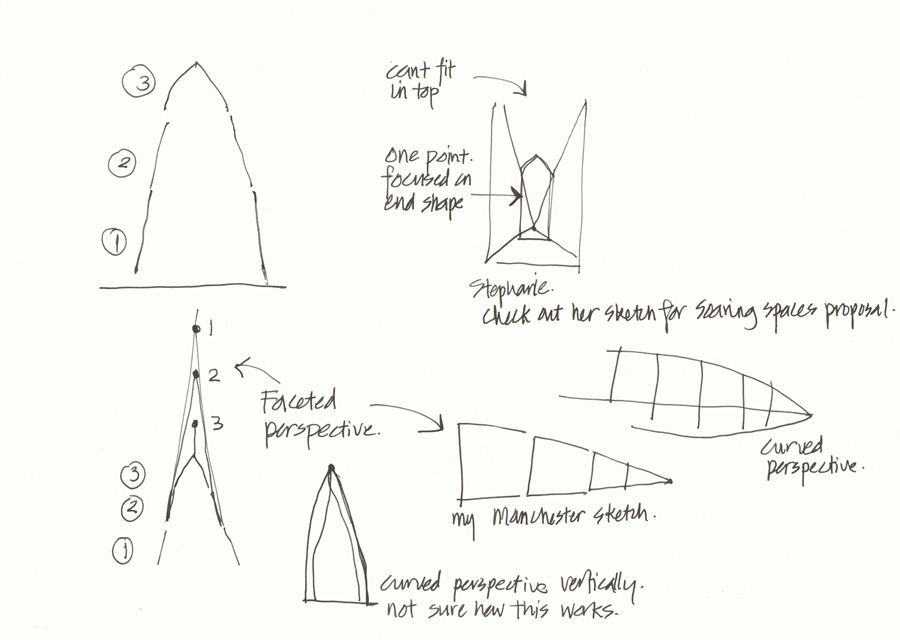 ③
②
①
cant fit
in top
One point.
focused on
end shape
Stephanie.
check out her sketch for Soaring spaces proposal.
1
2
3
③
②
①
Faceted
perspective.
curved
perspective.
my Manchester sketch.
curved perspective vertically.
not sure how this works.